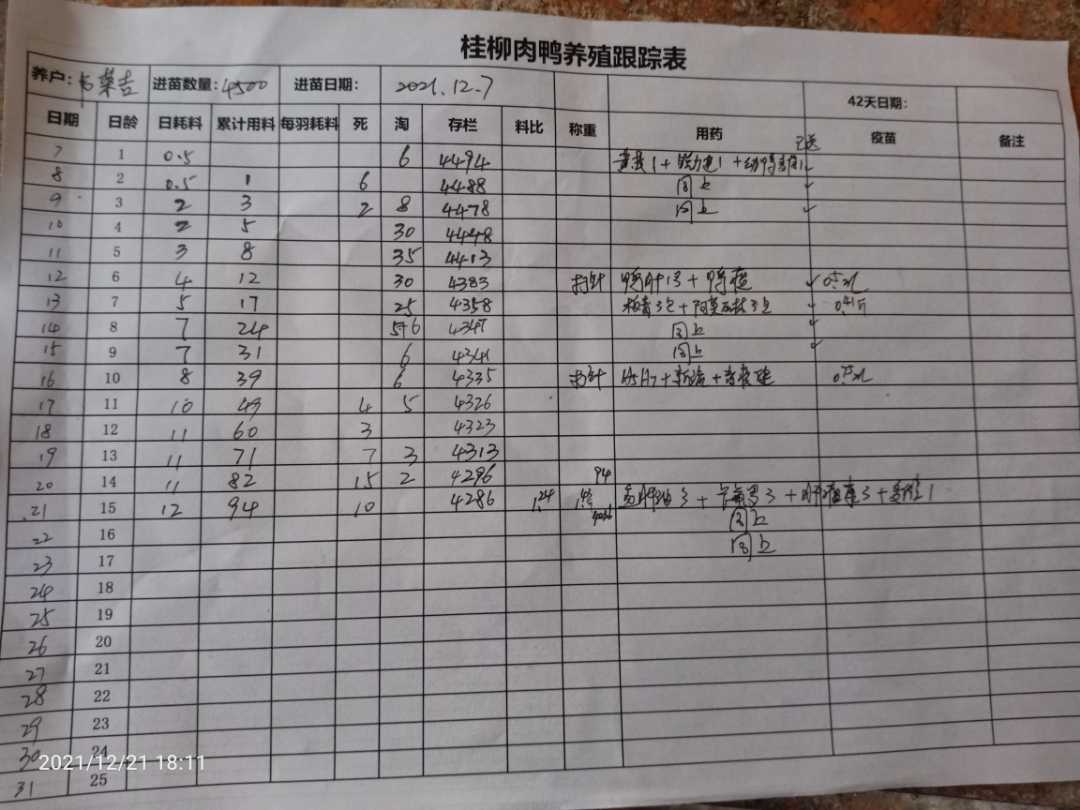 桂柳肉鸭养殖跟踪表
养户: 荣吉 进苗数量: 4500 进苗日期: 2021.12.7 42天日期:
日期 日龄 日耗料 累计用料 每羽耗料 死 淘 存栏 料比 称重 用药 疫苗 备注
7 1 0.5 6 4494
8 2 0.5 1 6 4488 同上 ✓
9 3 2 3 2 8 4478 同上 ✓
10 4 2 5 30 4448
11 5 3 8 35 4413
12 6 4 12 30 4383 打针 ✓
13 7 5 17 25 4358
14 8 7 24 5+6 4347 同上 ✓
15 9 7 31 6 4341 同上 ✓
16 10 8 39 6 4335 打针
17 11 10 49 4 5 4326
18 12 11 60 3 4323
19 13 11 71 7 3 4313
20 14 11 82 15 2 4296 94
21 15 12 94 10 4286 1.24
22 16 同上
23 17 同上
24 18
25 19
26 20
27 21
28 22
29 23
30 24
31 25
2021/12/21 18:11